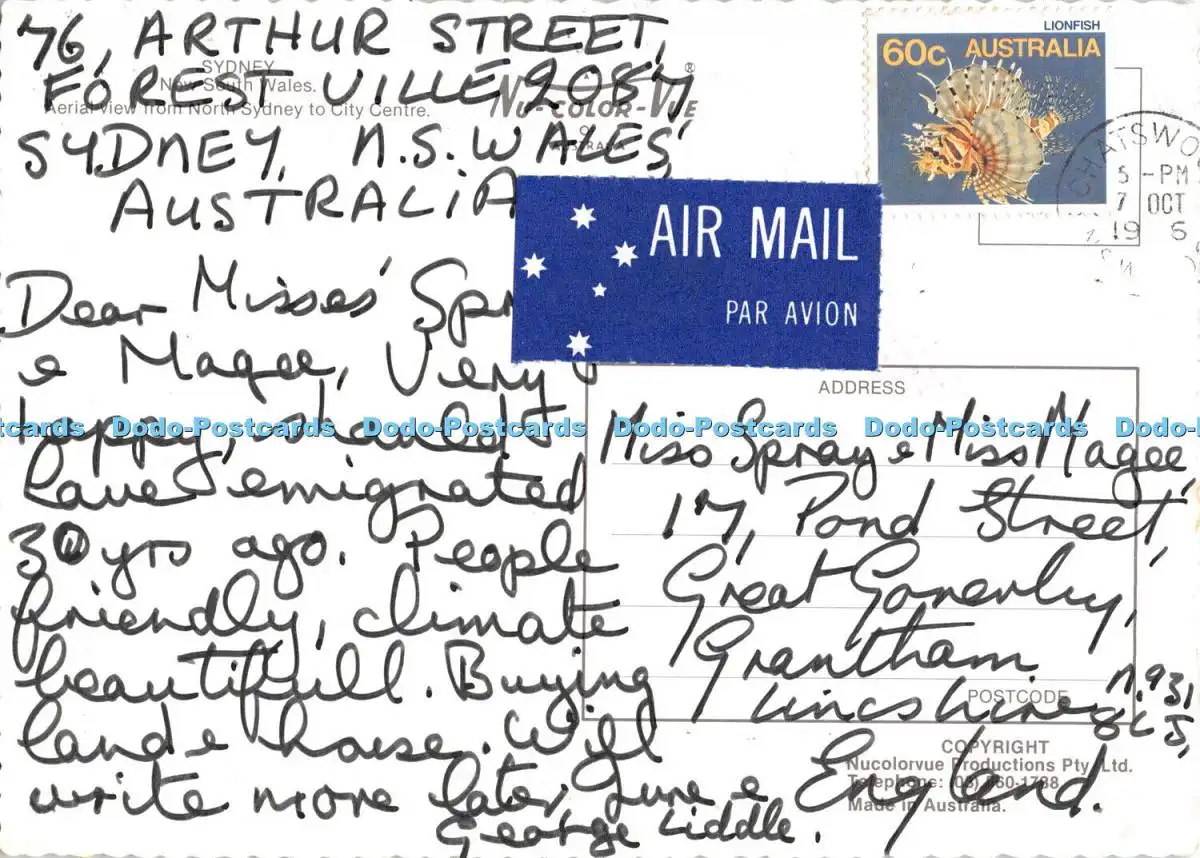 76, ARTHUR STREET,
FORESTVILLE 2087
SYDNEY, N.S. WALES,
AUSTRALIA
SYDNEY
New South Wales.
Aerial view from North Sydney to City Centre.
NU-COLOR-VUE®
AUSTRALIA
LIONFISH
60c AUSTRALIA
CHATSWO
5 -PM
7 OCT
19 6
AIR MAIL
PAR AVION
Dear Misses' Spr
e Magee, Very
happy, should
have emigrated
30 yrs ago. People
friendly, climate
beautifull. Buying
land e house. Will
write more later, June e
George Liddle.
ADDRESS
Miss Spray e Miss Magee,
17, Pond Street,
Great Gonerby,
Grantham
Lincshire
POSTCODE
England.
COPYRIGHT
Nucolorvue Productions Pty. Ltd.
Made in Australia.
Dodo-Postcards Dodo-Postcards Dodo-Postcards Dodo-Postcards